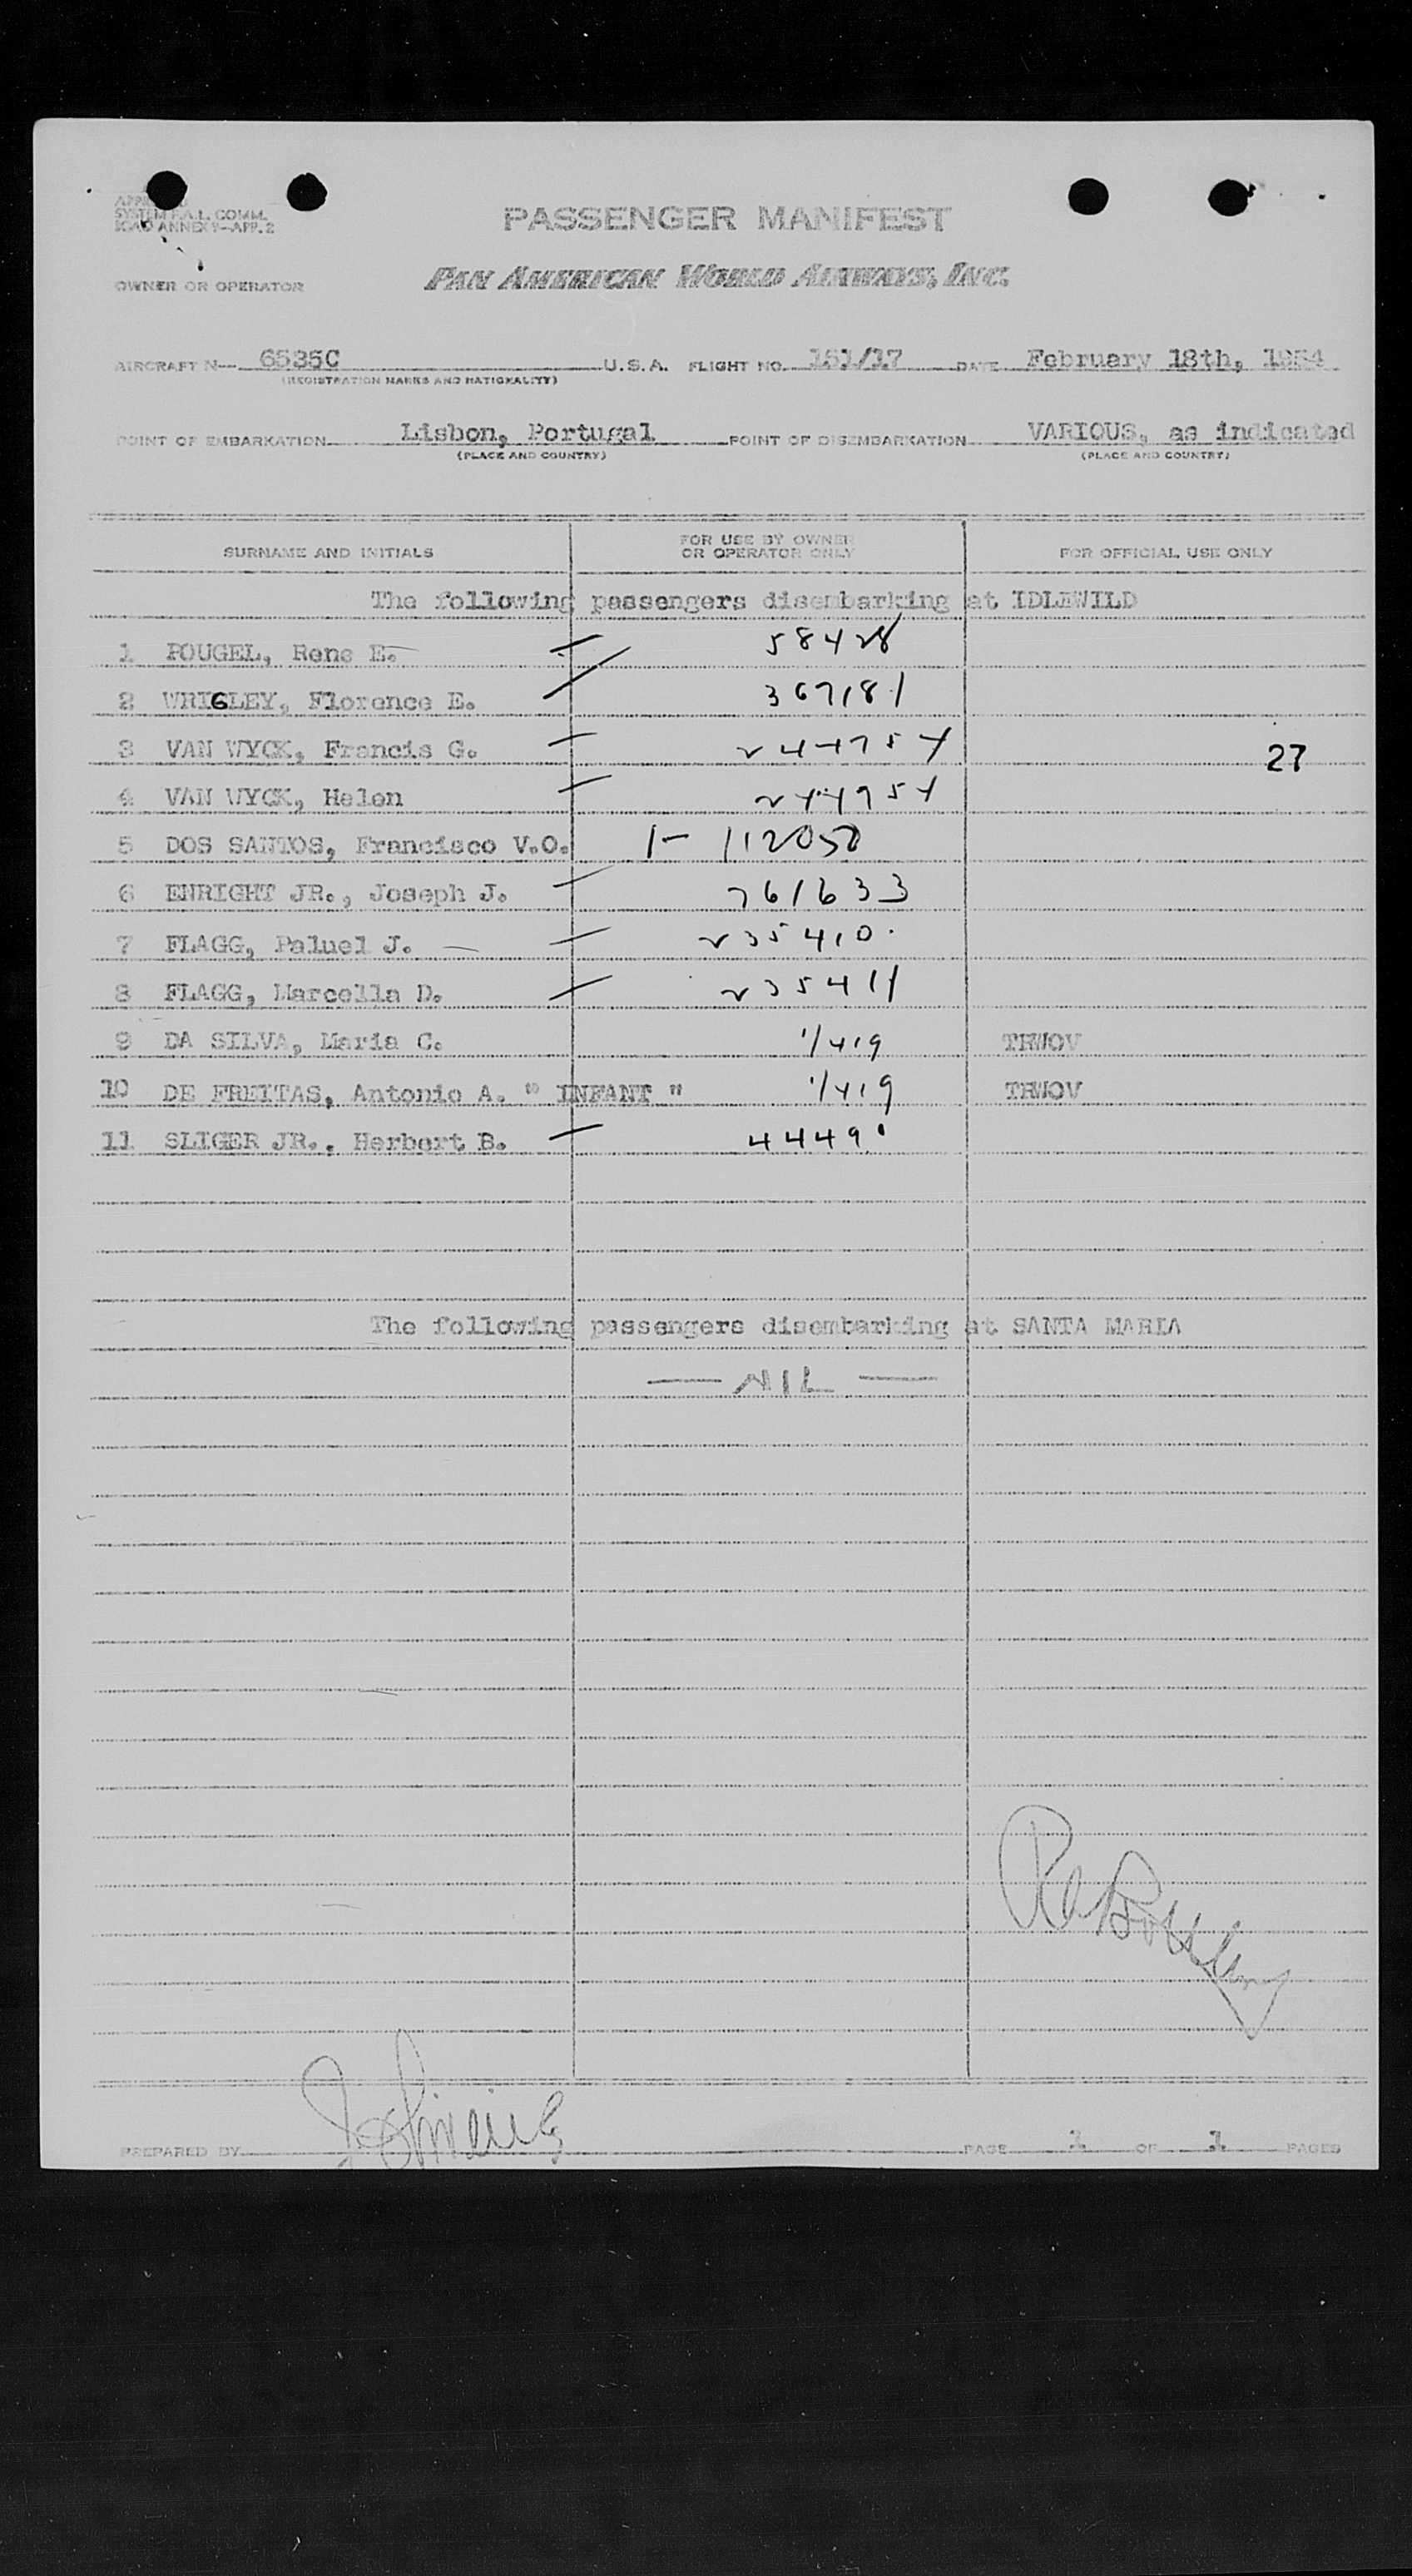 SYSTEM F.A.L. COMM.
ICAO ANNEX 9-APP. 2
PASSENGER MANIFEST
OWNER OR OPERATOR PAN AMERICAN WORLD AIRWAYS, INC.
AIRCRAFT N- 6535C U.S.A. FLIGHT NO. 151/17 DATE February 18th, 1954
(REGISTRATION MARKS AND NATIONALITY)
POINT OF EMBARKATION Lisbon, Portugal POINT OF DISEMBARKATION VARIOUS, as indicated
(PLACE AND COUNTRY) (PLACE AND COUNTRY)
SURNAME AND INITIALS FOR USE BY OWNER OR OPERATOR ONLY FOR OFFICIAL USE ONLY
The following passengers disembarking at IDLEWILD
1 POUGEL, Rene E. 58428
2 WRIGLEY, Florence E. 367181
3 VAN WYCK, Francis G. 27
4 VAN WYCK, Helen
5 DOS SANTOS, Francisco V.O. 1- 112050
6 ENRIGHT JR., Joseph J. 761633
7 FLAGG, Paluel J. 235410
8 FLAGG, Marcella D. 235411
9 DA SILVA, Maria C. 1/419 TRWOV
10 DE FREITAS, Antonio A. " INFANT " 1/419 TRWOV
11 SLIGER JR., Herbert B.
The following passengers disembarking at SANTA MARIA
— NIL —
PREPARED BY PAGE 1 OF 1 PAGES